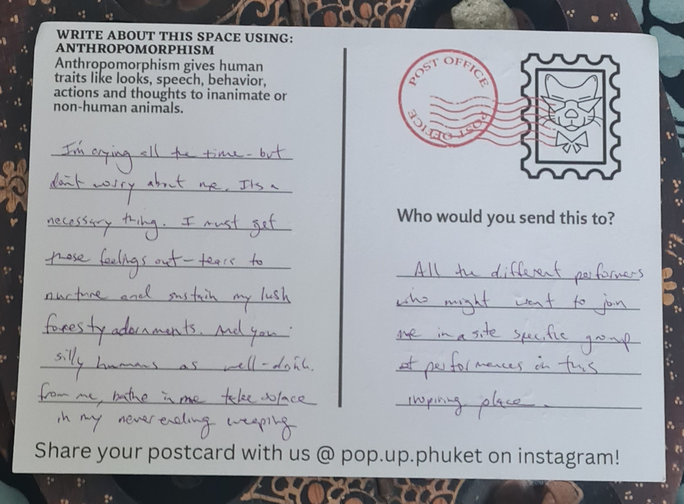 WRITE ABOUT THIS SPACE USING:
ANTHROPOMORPHISM
Anthropomorphism gives human
traits like looks, speech, behavior,
actions and thoughts to inanimate or
non-human animals.
I'm crying all the time - but
don't worry about me. Its a
necessary thing. I must get
those feelings out - tears to
nurture and sustain my lush
foresty adornments. And you
silly humans as well - drink
from me, bathe in me take solace
in my never ending weeping
POST OFFICE
POST OFFICE
Who would you send this to?
All the different performers
who might want to join
me in a site specific group
of performances in this
inspiring place.
Share your postcard with us @ pop.up.phuket on instagram!